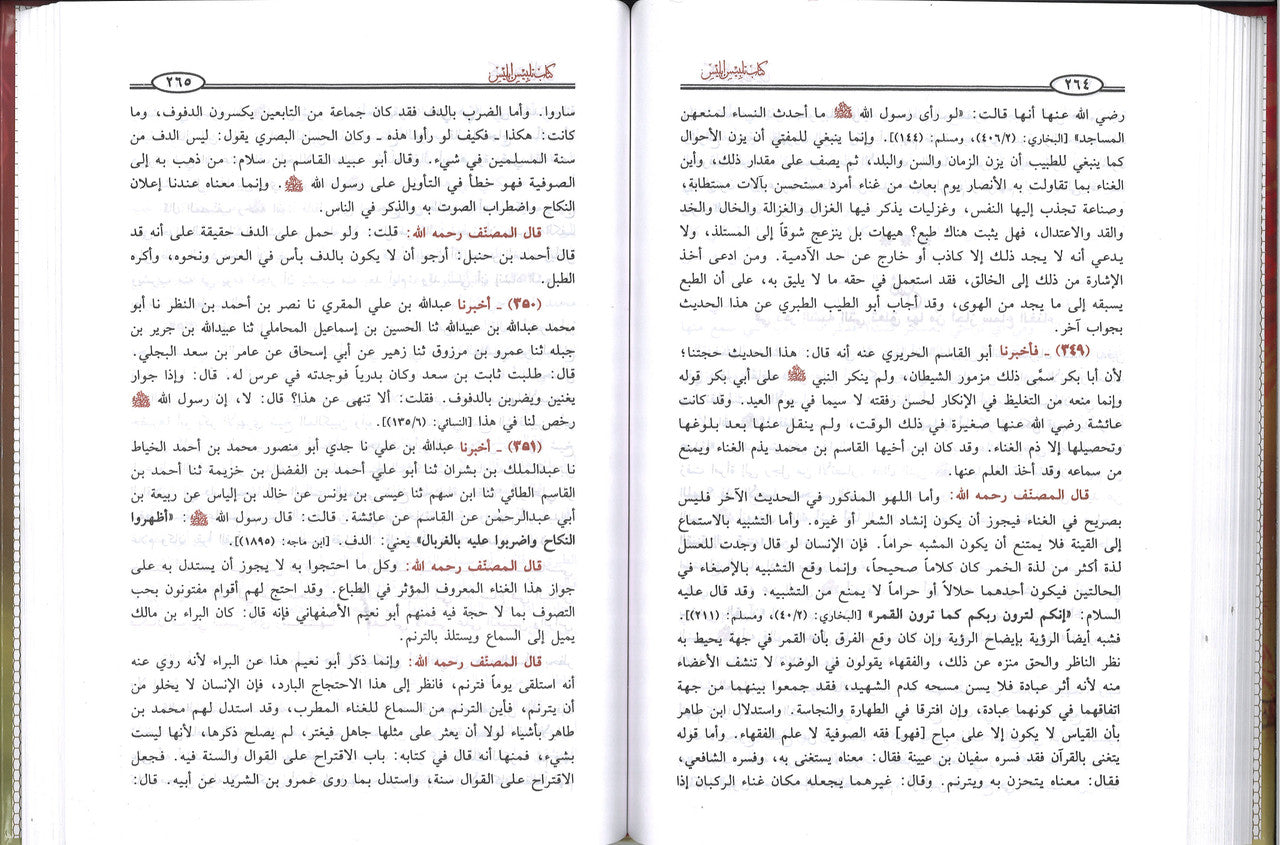 كتاب تلبيس إبليس
٢٦٤
رضي الله عنها أنها قالت: «لو رأى رسول الله ﷺ ما أحدث النساء لمنعهن
المساجد» [البخاري: (٤٠٦/٢)، ومسلم: (١٤٤)]. وإنما ينبغي للمفتي أن يزن الأحوال
كما ينبغي للطبيب أن يزن الزمان والسن والبلد، ثم يصف على مقدار ذلك، وأين
الغناء بما تقاولت به الأنصار يوم بعاث من غناء أمرد مستحسن بآلات مستطابة،
وصناعة تجذب إليها النفس، وغزليات يذكر فيها الغزال والغزالة والخال والخد
والقد والاعتدال، فهل يثبت هناك طبع؟ هيهات بل ينزعج شوقاً إلى المستلذ، ولا
يدعي أنه لا يجد ذلك إلا كاذب أو خارج عن حد الآدمية. ومن ادعى أخذ
الإشارة من ذلك إلى الخالق، فقد استعمل في حقه ما لا يليق به، على أن الطبع
يسبقه إلى ما يجد من الهوى، وقد أجاب أبو الطيب الطبري عن هذا الحديث
بجواب آخر.
(٣٤٩) ـ فأخبرنا أبو القاسم الحريري عنه أنه قال: هذا الحديث حجتنا؛
لأن أبا بكر سمَّى ذلك مزمور الشيطان، ولم ينكر النبي ﷺ على أبي بكر قوله
وإنما منعه من التغليظ في الإنكار لحسن رفقته لا سيما في يوم العيد. وقد كانت
عائشة رضي الله عنها صغيرة في ذلك الوقت، ولم ينقل عنها بعد بلوغها
وتحصيلها إلا ذم الغناء. وقد كان ابن أخيها القاسم بن محمد يذم الغناء ويمنع
من سماعه وقد أخذ العلم عنها.
قال المصنّف رحمه الله: وأما اللهو المذكور في الحديث الآخر فليس
بصريح في الغناء فيجوز أن يكون إنشاد الشعر أو غيره. وأما التشبيه بالاستماع
إلى القينة فلا يمتنع أن يكون المشبه حراماً. فإن الإنسان لو قال وجدت للعسل
لذة أكثر من لذة الخمر كان كلاماً صحيحاً، وإنما وقع التشبيه بالإصغاء في
الحالتين فيكون أحدهما حلالاً أو حراماً لا يمنع من التشبيه. وقد قال عليه
السلام: «إنكم لترون ربكم كما ترون القمر» [البخاري: (٤٠/٢)، ومسلم: (٢١١)].
فشبه أيضاً الرؤية بإيضاح الرؤية وإن كان وقع الفرق بأن القمر في جهة يحيط به
نظر الناظر والحق منزه عن ذلك، والفقهاء يقولون في الوضوء لا تنشف الأعضاء
منه لأنه أثر عبادة فلا يسن مسحه كدم الشهيد، فقد جمعوا بينهما من جهة
اتفاقهما في كونهما عبادة، وإن افترقا في الطهارة والنجاسة. واستدلال ابن طاهر
بأن القياس لا يكون إلا على مباح [فهو] فقه الصوفية لا علم الفقهاء. وأما قوله
يتغنى بالقرآن فقد فسره سفيان بن عيينة فقال: معناه يستغنى به، وفسره الشافعي،
فقال: معناه يتحزن به ويترنم. وقال: غيرهما يجعله مكان غناء الركبان إذا
كتاب تلبيس إبليس
٢٦٥
ساروا. وأما الضرب بالدف فقد كان جماعة من التابعين يكسرون الدفوف، وما
كانت: هكذا ـ فكيف لو رأوا هذه ـ وكان الحسن البصري يقول: ليس الدف من
سنة المسلمين في شيء. وقال أبو عبيد القاسم بن سلام: من ذهب به إلى
الصوفية فهو خطأ في التأويل على رسول الله ﷺ. وإنما معناه عندنا إعلان
النكاح واضطراب الصوت به والذكر في الناس.
قال المصنّف رحمه الله: قلت: ولو حمل على الدف حقيقة على أنه قد
قال أحمد بن حنبل: أرجو أن لا يكون بالدف بأس في العرس ونحوه، وأكره
الطبل.
(٣٥٠) ـ أخبرنا عبدالله بن علي المقري نا نصر بن أحمد بن النظر نا أبو
محمد عبدالله بن عبيدالله ثنا الحسين بن إسماعيل المحاملي ثنا عبيدالله بن جرير بن
جبله ثنا عمرو بن مرزوق ثنا زهير عن أبي إسحاق عن عامر بن سعد البجلي.
قال: طلبت ثابت بن سعد وكان بدرياً فوجدته في عرس له. قال: وإذا جوار
يغنين ويضربن بالدفوف. فقلت: ألا تنهى عن هذا؟ قال: لا، إن رسول الله ﷺ
رخص لنا في هذا [النسائي: (١٣٥/٦)].
(٣٥١) ـ أخبرنا عبدالله بن علي نا جدي أبو منصور محمد بن أحمد الخياط
نا عبدالملك بن بشران ثنا أبو علي أحمد بن الفضل بن خزيمة ثنا أحمد بن
القاسم الطائي ثنا ابن سهم ثنا عيسى بن يونس عن خالد بن إلياس عن ربيعة بن
أبي عبدالرحمٰن عن القاسم عن عائشة. قالت: قال رسول الله ﷺ: «أظهروا
النكاح واضربوا عليه بالغربال» يعني: الدف. [ابن ماجه: (١٨٩٥)].
قال المصنّف رحمه الله: وكل ما احتجوا به لا يجوز أن يستدل به على
جواز هذا الغناء المعروف المؤثر في الطباع. وقد احتج لهم أقوام مفتونون بحب
التصوف بما لا حجة فيه فمنهم أبو نعيم الأصفهاني فإنه قال: كان البراء بن مالك
يميل إلى السماع ويستلذ بالترنم.
قال المصنّف رحمه الله: وإنما ذكر أبو نعيم هذا عن البراء لأنه روي عنه
أنه استلقى يوماً فترنم، فانظر إلى هذا الاحتجاج البارد، فإن الإنسان لا يخلو من
أن يترنم، فأين الترنم من السماع للغناء المطرب، وقد استدل لهم محمد بن
طاهر بأشياء لولا أن يعثر على مثلها جاهل فيغتر، لم يصلح ذكرها، لأنها ليست
بشيء، فمنها أنه قال في كتابه: باب الاقتراح على القوال والسنة فيه. فجعل
الاقتراح على القوال سنة، واستدل بما روى عمرو بن الشريد عن أبيه. قال: